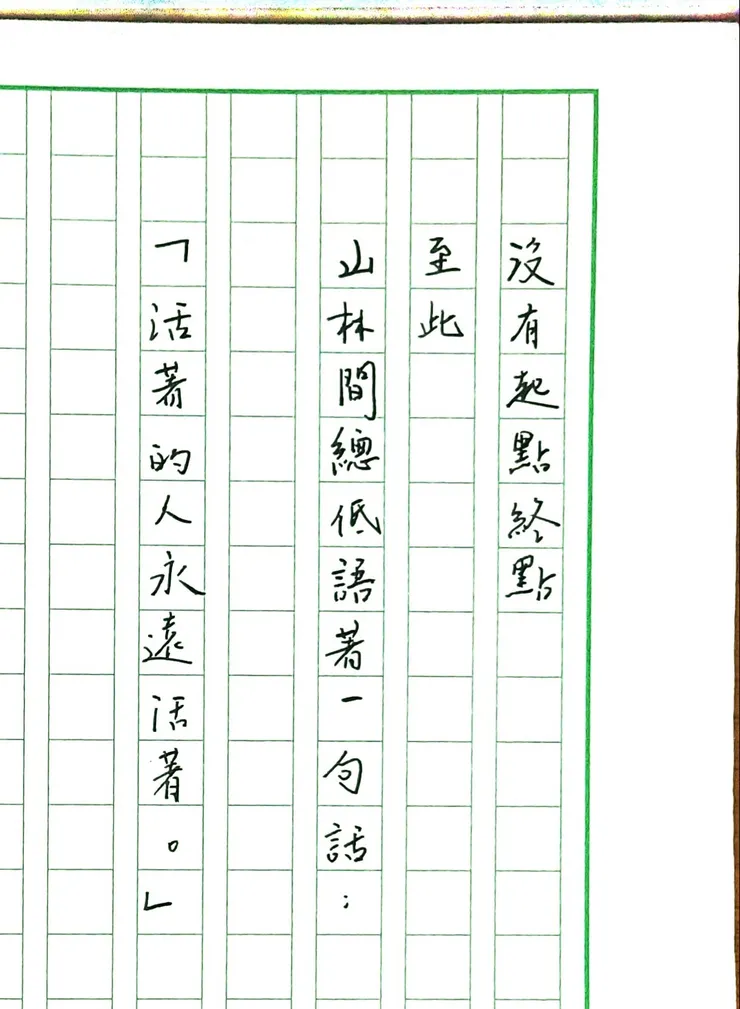 沒有起點終點
至此
山林間總低語著一句話：
「活著的人永遠活著。」